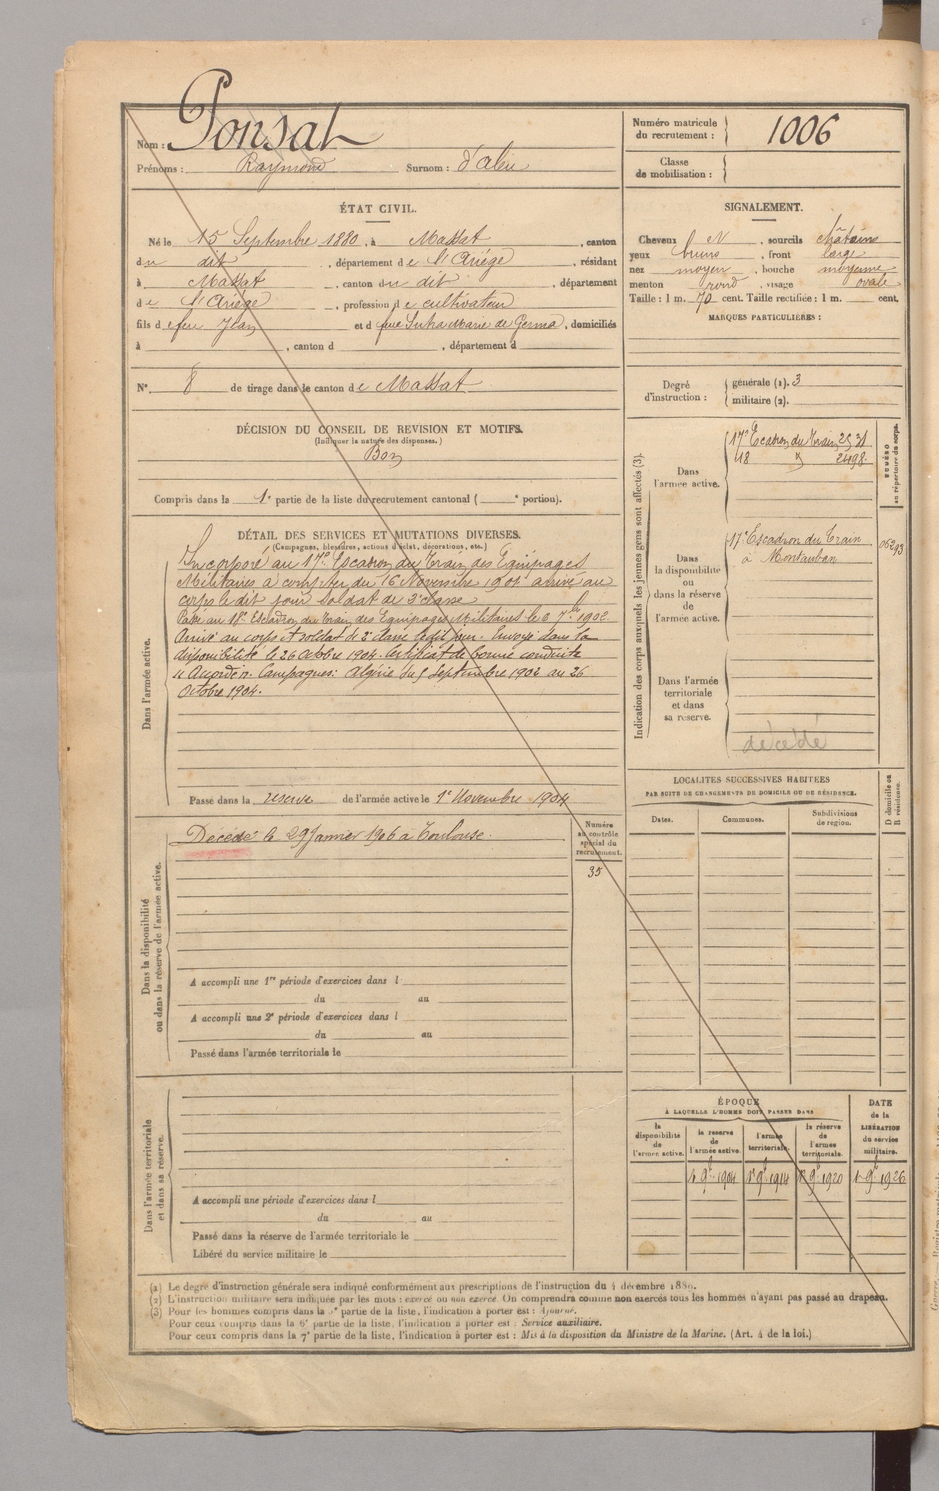 Nom : Ponsat
Prénoms : Raymond Surnom : d'Aleu
Numéro matricule du recrutement : 1006
Classe de mobilisation :
ÉTAT CIVIL.
Né le 15 Septembre 1880, à Massat, canton
du dit, département de l'Ariège, résidant
à Massat, canton du dit, département
de l'Ariège, profession de cultivateur
fils de feu Jean et de feue Marie de Germa, domiciliés
à , canton d , département d
N° 8 de tirage dans le canton de Massat
SIGNALEMENT.
Cheveux N, sourcils châtains
yeux bruns, front large
nez moyen, bouche moyenne
menton rond, visage ovale
Taille : 1 m. 70 cent. Taille rectifiée : 1 m. cent.
MARQUES PARTICULIÈRES :
Degré d'instruction : générale (1). 3
militaire (2).
DÉCISION DU CONSEIL DE REVISION ET MOTIFS.
(Indiquer la nature des dispenses.)
Bon
Compris dans la 1e partie de la liste du recrutement cantonal ( e portion).
DÉTAIL DES SERVICES ET MUTATIONS DIVERSES.
(Campagnes, blessures, actions d'éclat, décorations, etc.)
Dans l'armée active.
Incorporé au 17e Escadron du Train des Équipages
Militaires à compter du 16 Novembre 1901 arrivé au
corps le dit jour soldat de 2e classe
Passé au 18e Escadron du Train des Equipages Militaires le 7bre 1902
Arrivé au corps et soldat de 2e classe le dit jour. Envoyé dans la
disponibilité le 26 Octobre 1904. Certificat de bonne conduite
"Accordé". Campagnes: Algérie du 5 Septembre 1902 au 26
Octobre 1904.
Passé dans la reserve de l'armée active le 1er Novembre 1904
Indication des corps auxquels les jeunes gens sont affectés (3).
NUMÉRO au répertoire du corps.
Dans l'armée active.
17e Escadron du Train 2531
18 " 2498.
Dans la disponibilité ou dans la réserve de l'armée active.
17e Escadron du Train
à Montauban
06293
Dans l'armée territoriale et dans sa reserve.
décédé
Dans la disponibilité ou dans la réserve de l'armée active.
Décédé le 29 Janvier 1906 à Toulouse.
Numéro au contrôle spécial du recrutement.
35
A accompli une 1re période d'exercices dans l
du au
A accompli une 2e période d'exercices dans l
du au
Passé dans l'armée territoriale le
LOCALITÉS SUCCESSIVES HABITÉES
PAR SUITE DE CHANGEMENTS DE DOMICILE OU DE RÉSIDENCE.
D domicile ou R résidence.
Dates. Communes. Subdivisions de région.
Dans l'armée territoriale et dans sa réserve.
A accompli une période d'exercices dans l
du au
Passé dans la réserve de l'armée territoriale le
Libéré du service militaire le
ÉPOQUE
À LAQUELLE L'HOMME DOIT PASSER DANS
la disponibilité de l'armée active.
la reserve de l'armée active.
l'armée territoriale.
la réserve de l'armée territoriale.
DATE de la LIBÉRATION du service militaire.
1er 9bre 1904 1er 9bre 1914 1er 9bre 1920 1er 9bre 1926
(1) Le degré d'instruction générale sera indiqué conformément aux prescriptions de l'instruction du 4 décembre 1889.
(2) L'instruction militaire sera indiquée par les mots : exercé ou non exercé. On comprendra comme non exercés tous les hommes n'ayant pas passé au drapeau.
(3) Pour les hommes compris dans la 5e partie de la liste, l'indication à porter est : Ajourné.
Pour ceux compris dans la 6e partie de la liste, l'indication à porter est : Service auxiliaire.
Pour ceux compris dans la 7e partie de la liste, l'indication à porter est : Mis à la disposition du Ministre de la Marine. (Art. 4 de la loi.)